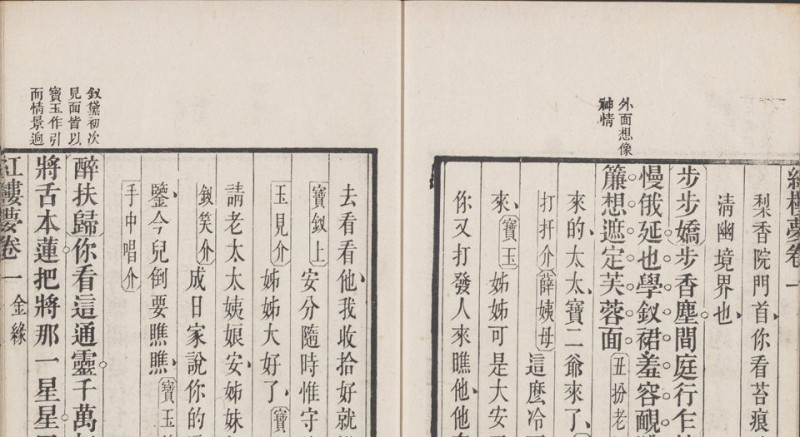 紅樓夢卷一
外面想像
神情
梨香院門首你看苔痕
清幽境界也
步步嬌步香塵閒庭行乍
慢俄延也學釵裙羞容靦
簾想遮定芙蓉面丑扮老
來的太太寶二爺來了
打扦介薛姨母這麼冷
來寶玉姊姊可是大安
你又打發人來瞧他他
釵黛初次
見面皆以
寶玉作引
而情景逈
去看看他我收拾好就
寶釵上安分隨時惟守
玉見介姊姊大好了寶
請老太太姨娘安姊妹
釵笑介成日家說你的
鑒今兒倒要瞧瞧寶玉
手中唱介
醉扶歸你看這通靈千萬
將舌本蓮把將那一星星
紅樓夢卷一金緣